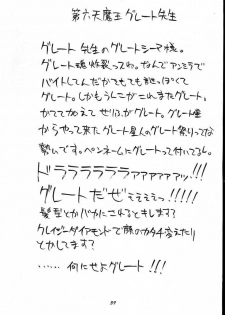 第六天魔王グレート先生
グレート先生のグレートシーマ様。
グレート魂炸裂ってね。なんでアンミラで
バイトしてんだかてもても艶っぽくて
グレート。しかもうしこがこれまたグレート。
かててくわえて ぜいぶがグレート。グレート星
からやって来たグレート星人のグレート祭りってな
勢いです。ペンネームにグレートって付いてるし。
ドララララララァァァァァァッ!!!
グレートだぜぇぇぇぇっ!!!!!
髪型とかバカにこれるとキレます?
クレイジーダイアモンドで顔のカタチ変えたり
とかしてます?
……何にせよグレート!!!